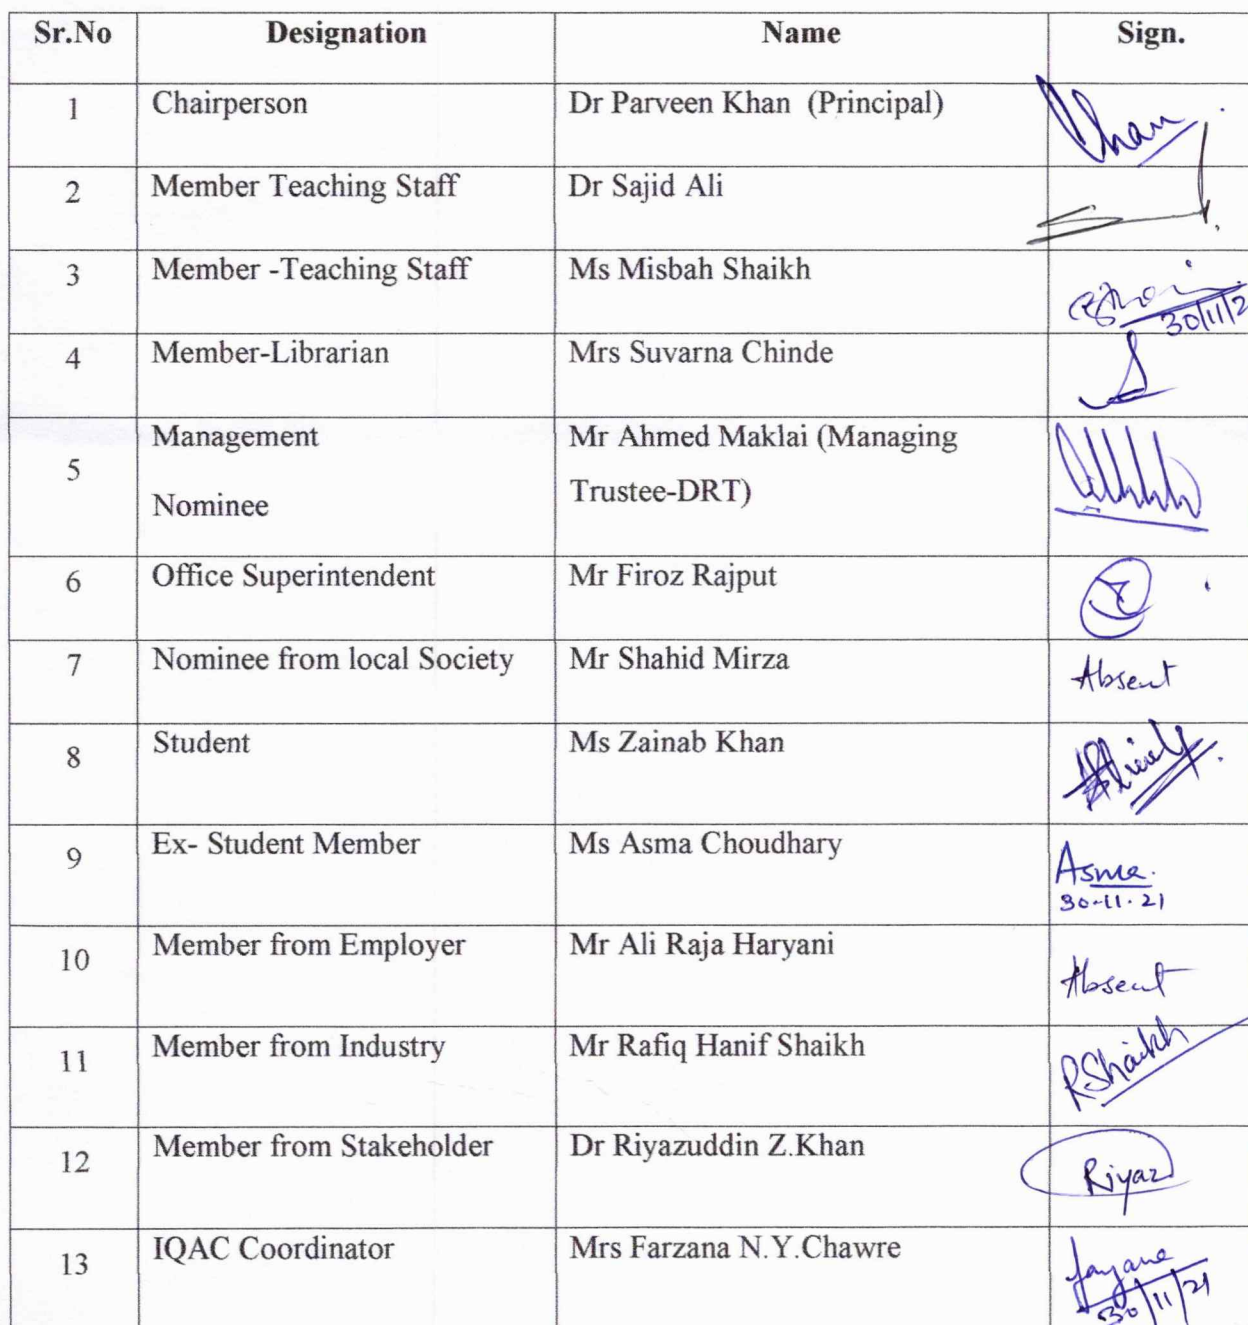 Sr.No Designation Name Sign.
1 Chairperson Dr Parveen Khan (Principal)
2 Member Teaching Staff Dr Sajid Ali
3 Member -Teaching Staff Ms Misbah Shaikh
30/11/2
4 Member-Librarian Mrs Suvarna Chinde
5 Management Mr Ahmed Maklai (Managing
Nominee Trustee-DRT)
6 Office Superintendent Mr Firoz Rajput
7 Nominee from local Society Mr Shahid Mirza Absent
8 Student Ms Zainab Khan
9 Ex- Student Member Ms Asma Choudhary Asma.
30-11-21
10 Member from Employer Mr Ali Raja Haryani Absent
11 Member from Industry Mr Rafiq Hanif Shaikh RShaikh
12 Member from Stakeholder Dr Riyazuddin Z.Khan Riyaz
13 IQAC Coordinator Mrs Farzana N.Y.Chawre
30/11/21